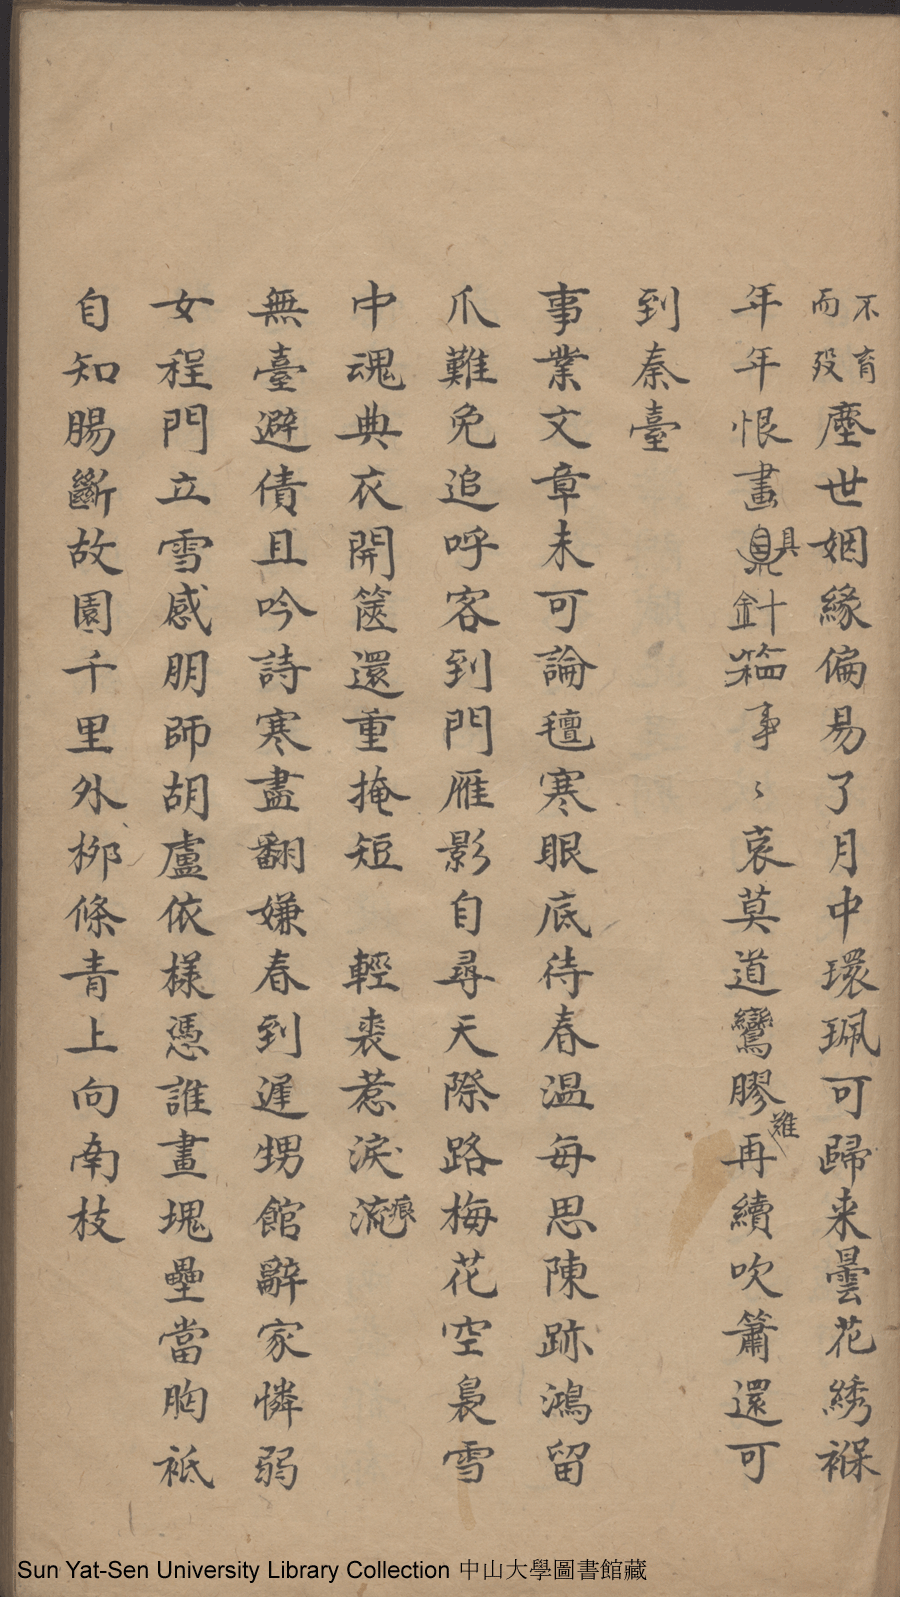 不育而歿塵世姻緣偏易了月中環珮可歸来曇花綉褓
年年恨畫具針箱事〻哀莫道鸞膠難再續吹簫還可
到秦臺
事業文章未可論氊寒眼底待春温每思陳跡鴻留
爪難免追呼客到門雁影自尋天際路梅花空裊雪
中魂典衣開篋還重掩短輕裘惹淚流痕
無臺避債且吟詩寒盡翻嫌春到遲甥館辭家憐弱
女程門立雪感朋師胡盧依樣憑誰畫塊壘當胸祗
自知腸斷故園千里外栁條青上向南枝
Sun Yat-Sen University Library Collection 中山大學圖書館藏